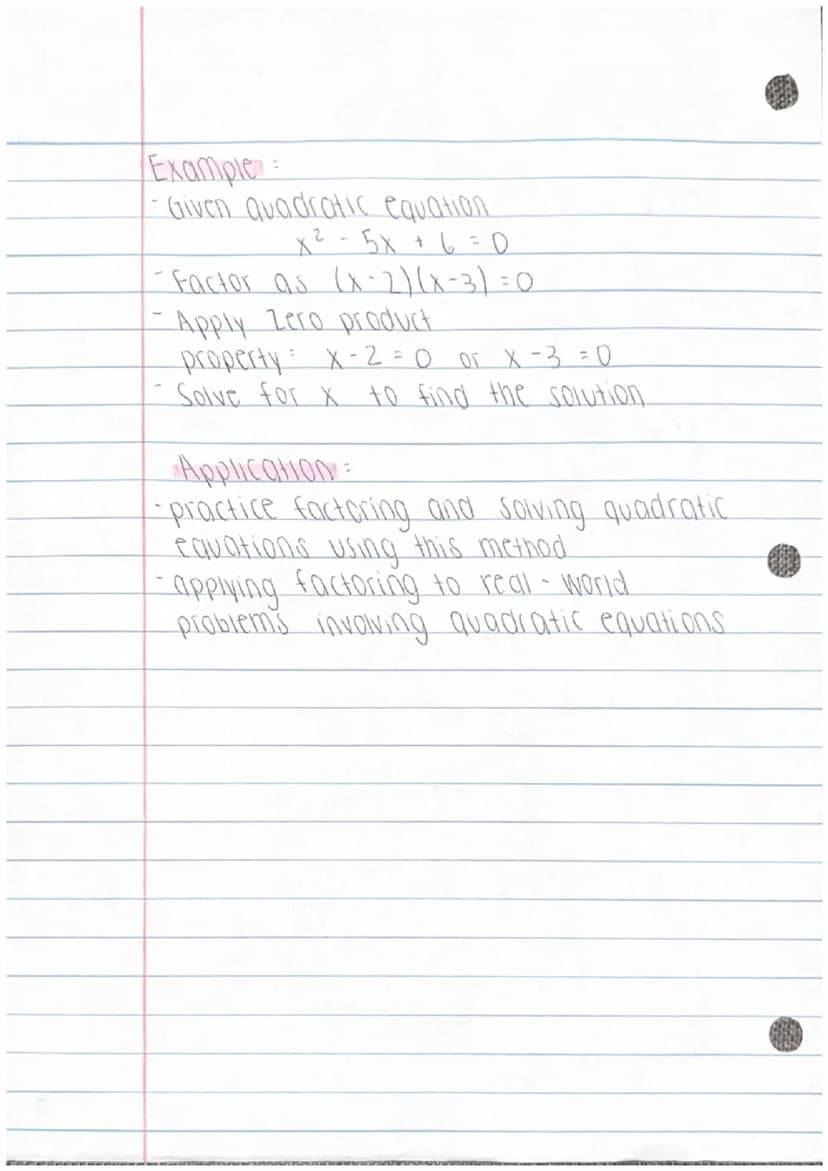 Example :
- Given quadratic equation
x² - 5x + 6 = 0
- Factor as (x-2)(x-3) = 0
- Apply Zero product
property: x-2 = 0 or x-3 = 0
- Solve for x to find the solution
Application :
- practice factoring and solving quadratic
equations using this method
- applying factoring to real-world
problems involving quadratic equations